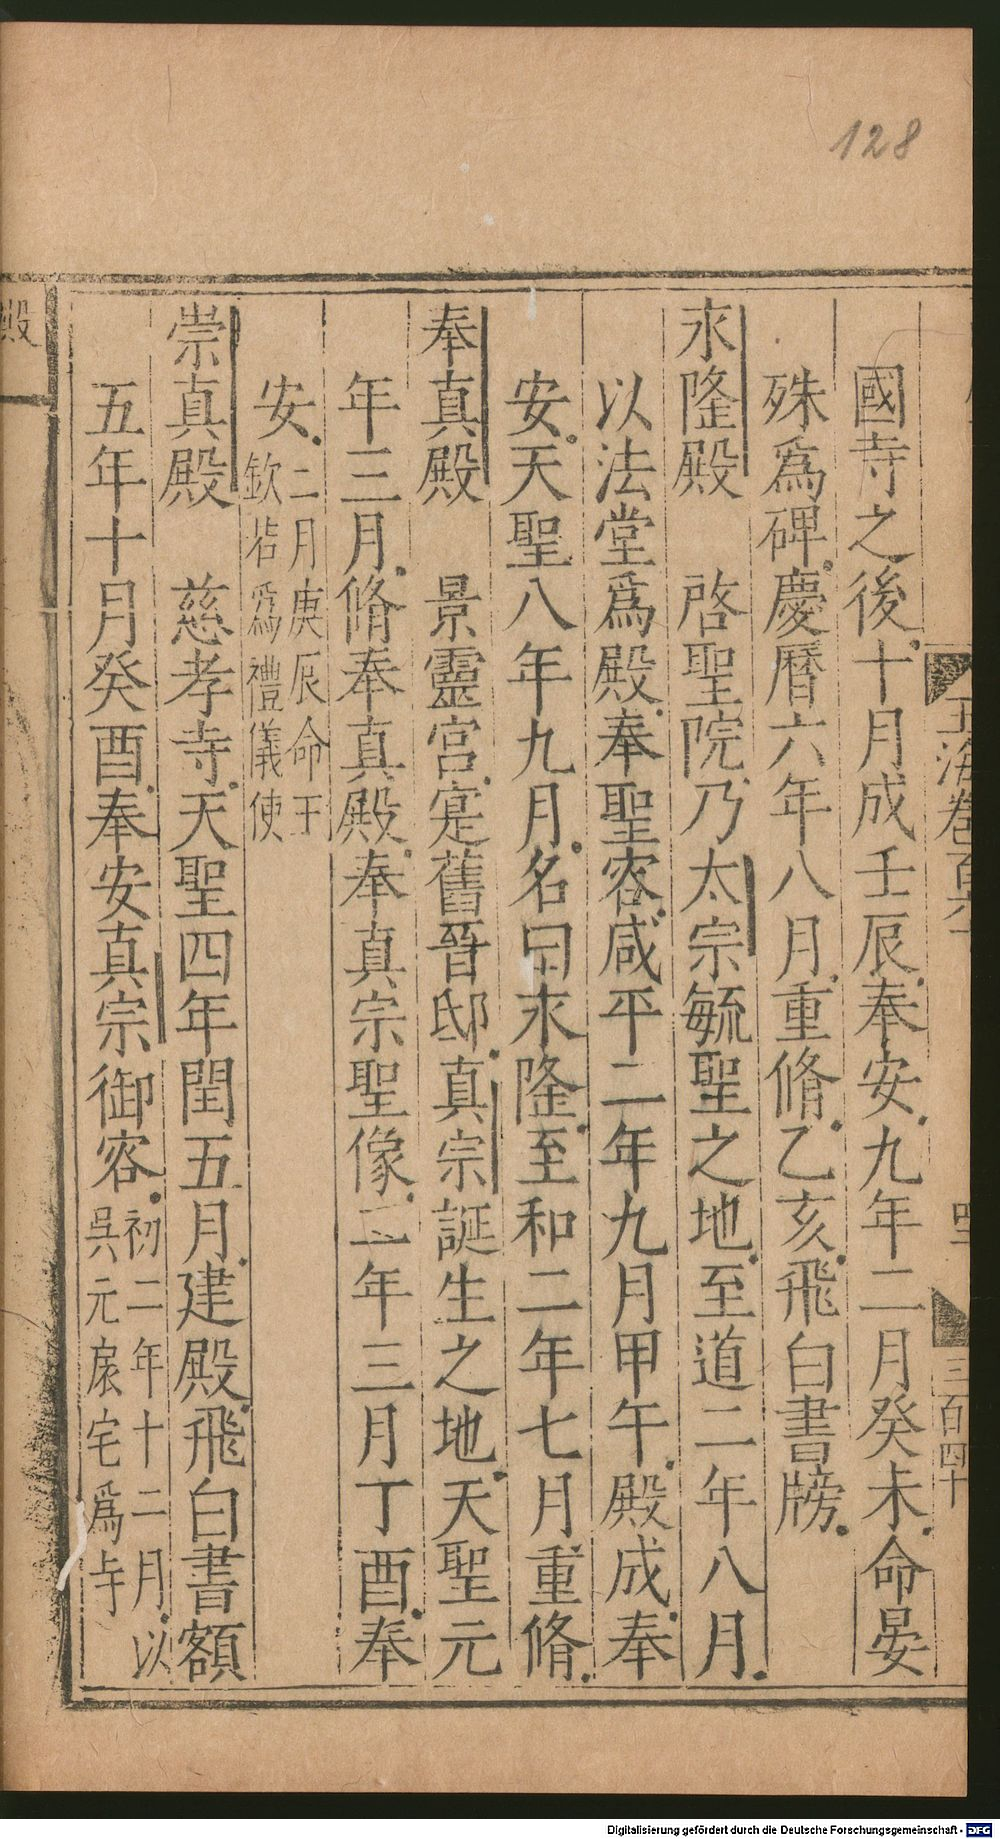 128
國寺之後十月成壬辰奉安九年二月癸未命晏
殊爲碑慶曆六年八月重脩乙亥飛白書牓
永隆殿 啓聖院乃太宗毓聖之地至道二年八月
以法堂爲殿奉聖容咸平二年九月甲午殿成奉
安天聖八年九月名曰永隆至和二年七月重脩
奉真殿 景靈宮寔舊晉邸真宗誕生之地天聖元
年三月脩奉真殿奉真宗聖像二年三月丁酉奉
安二月庚辰命王
欽若爲禮儀使
崇真殿 慈孝寺天聖四年閏五月建殿飛白書額
五年十月癸酉奉安真宗御容初二年十二月以
吳元扆宅爲寺
玉海卷百六
三百四十
殿
Digitalisierung gefördert durch die Deutsche Forschungsgemeinschaft - DFG